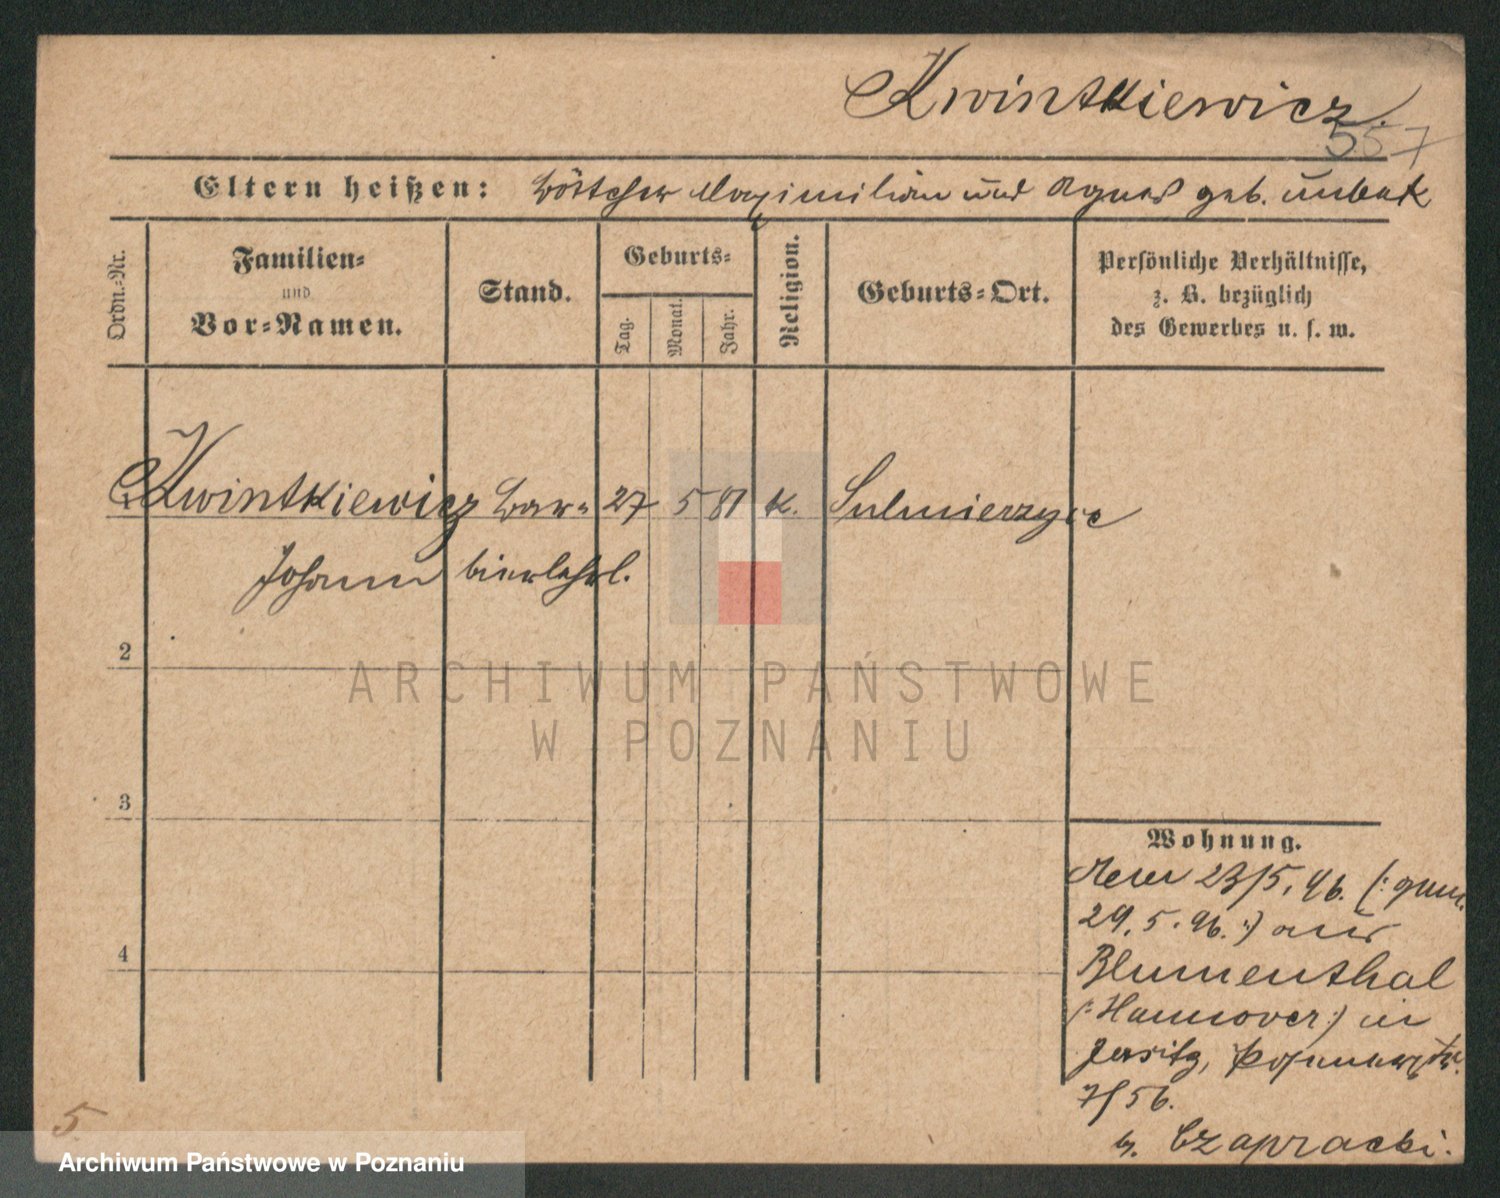 Kwintkiewicz.
557
Eltern heißen: Böttcher Maximilian und Agnes geb.
Ordn.-Nr.
Familien-
und
Vor-Namen.
Stand.
Geburts-
Tag.
Monat.
Jahr.
Religion.
Geburts-Ort.
Persönliche Verhältnisse,
z. B. bezüglich
des Gewerbes u. s. w.
Kwintkiewicz Bar- 27 5 81 k. Sulmierzyce
Johann bierlehrl.
2
3
4
ARCHIWUM PAŃSTWOWE
W POZNANIU
Wohnung.
23/5. 96. (: gem.
29. 5. 96. :) aus
Blumenthal
(: Hannover :) in
Jersitz, Posenerstr.
7/56.
b. Czapracki.
5.
Archiwum Państwowe w Poznaniu